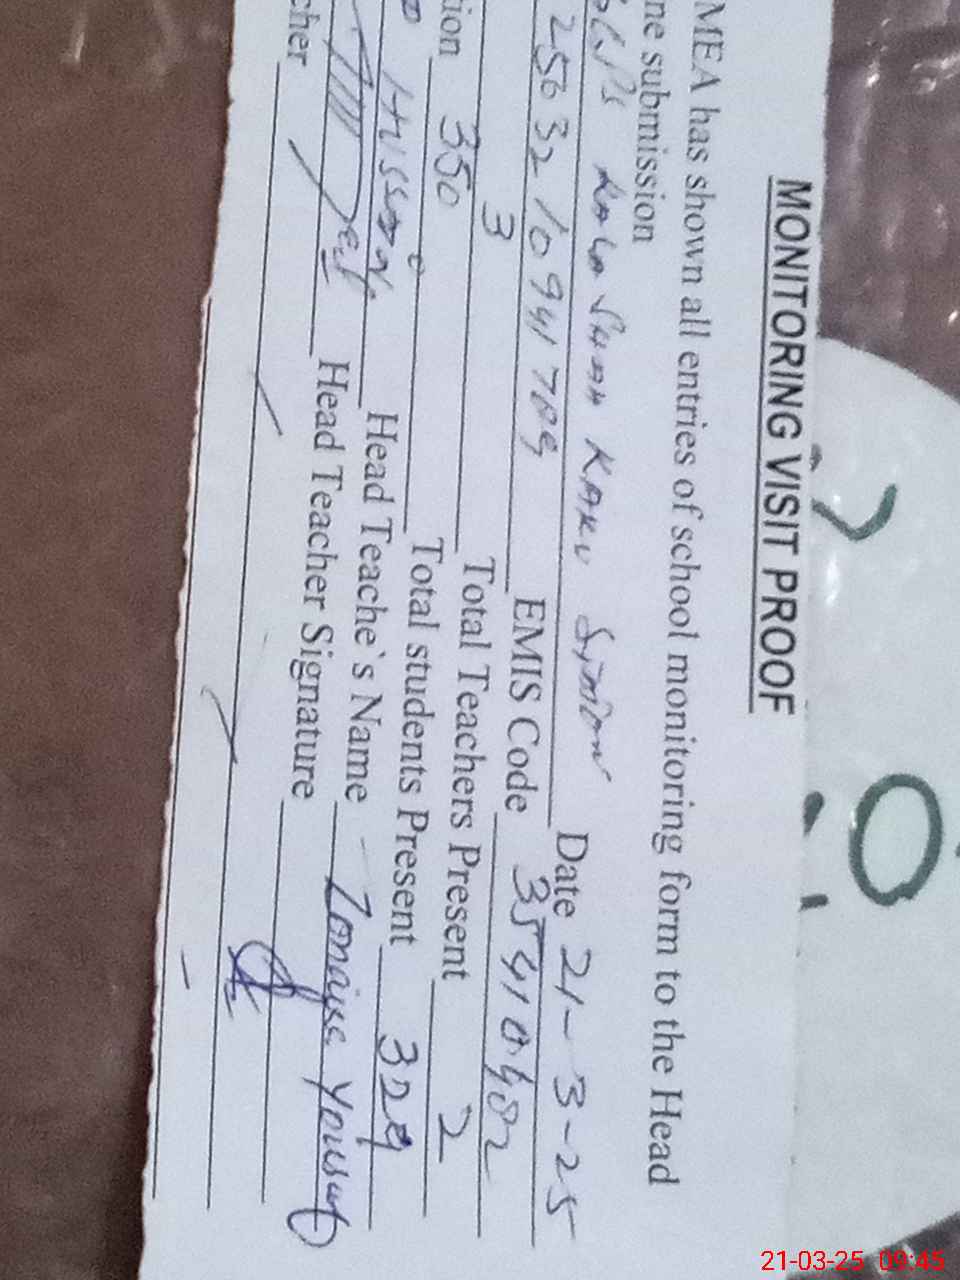 MONITORING VISIT PROOF
MEA has shown all entries of school monitoring form to the Head
ne submission
Kala Shah Kaku Station Date 21-3-25
EMIS Code 35410402
3 Total Teachers Present 2
ion 350 Total students Present 329
Hussnain Head Teache`s Name Zonaira Yousaf
cher Head Teacher Signature
21-03-25 09:45